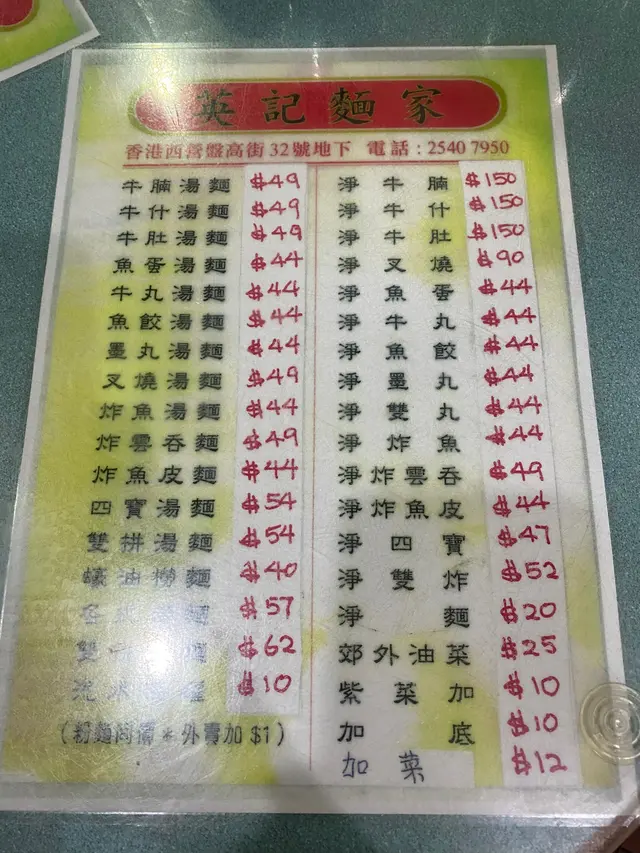 英記麵家
香港西營盤高街32號地下 電話：2540 7950
牛腩湯麵 $49
牛什湯麵 $49
牛肚湯麵 $49
魚蛋湯麵 $44
牛丸湯麵 $44
魚餃湯麵 $44
墨丸湯麵 $44
叉燒湯麵 $49
炸魚湯麵 $44
炸雲吞麵 $49
炸魚皮麵 $44
四寶湯麵 $54
雙拼湯麵 $54
蠔油撈麵 $40
麵 $57
雙 $62
$10
(粉麵同價＊外賣加$1)
淨牛腩 $150
淨牛什 $150
淨牛肚 $150
淨叉燒 $90
淨魚蛋 $44
淨牛丸 $44
淨魚餃 $44
淨墨丸 $44
淨雙丸 $44
淨炸魚 $44
淨炸雲吞 $49
淨炸魚皮 $44
淨四寶 $47
淨雙炸 $52
淨麵 $20
郊外油菜 $25
紫菜加 $10
加底 $10
加菜 $12